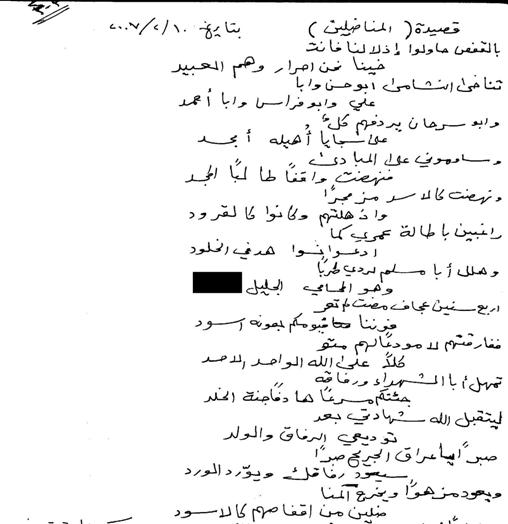 قصيدة ( المناضلين ) بتاريخ ٢٠٠٧/٢/١٠
بالقفص حاولوا إذلالنا فانت
خينا نحن احرار وهم العبيد
تناخى النشامى أبو حسن وابا
علي وابو فراس وابا أحمد
وابو سرحان يردفهم كل
على سجايا أهيله أمجد
وساوموني على المبادئ
فنهضت واقفًا طالبًا المجد
ونهضت كالاسد مزمجرًا
واذهلتهم وكانوا كالقرود
راغبين باطالة عمري كما
ادعوا نسوا هدفي الخلود
وهلل أبا مسلم لردي طربًا
وهو المحامي الجليل
اربع سنين عجاف مضت لم تمر
فوننا بعونه اسود
ففارقتهم لا مودعًا لهم
كلا على الله الواحد الاحد
تمهل أبا الشهداء ورفاقه
جئتكم مسرعًا هادفًا جنة الخلد
ليتقبل الله شهادتي بعد
توديعي الرفاق والولد
صبرًا يا عراق الجريح صبرًا
سيعود رفاقك ويورد الورد
ويعود مزهوًا ويخرج المنا
ضلين من اقفاصهم كالاسود